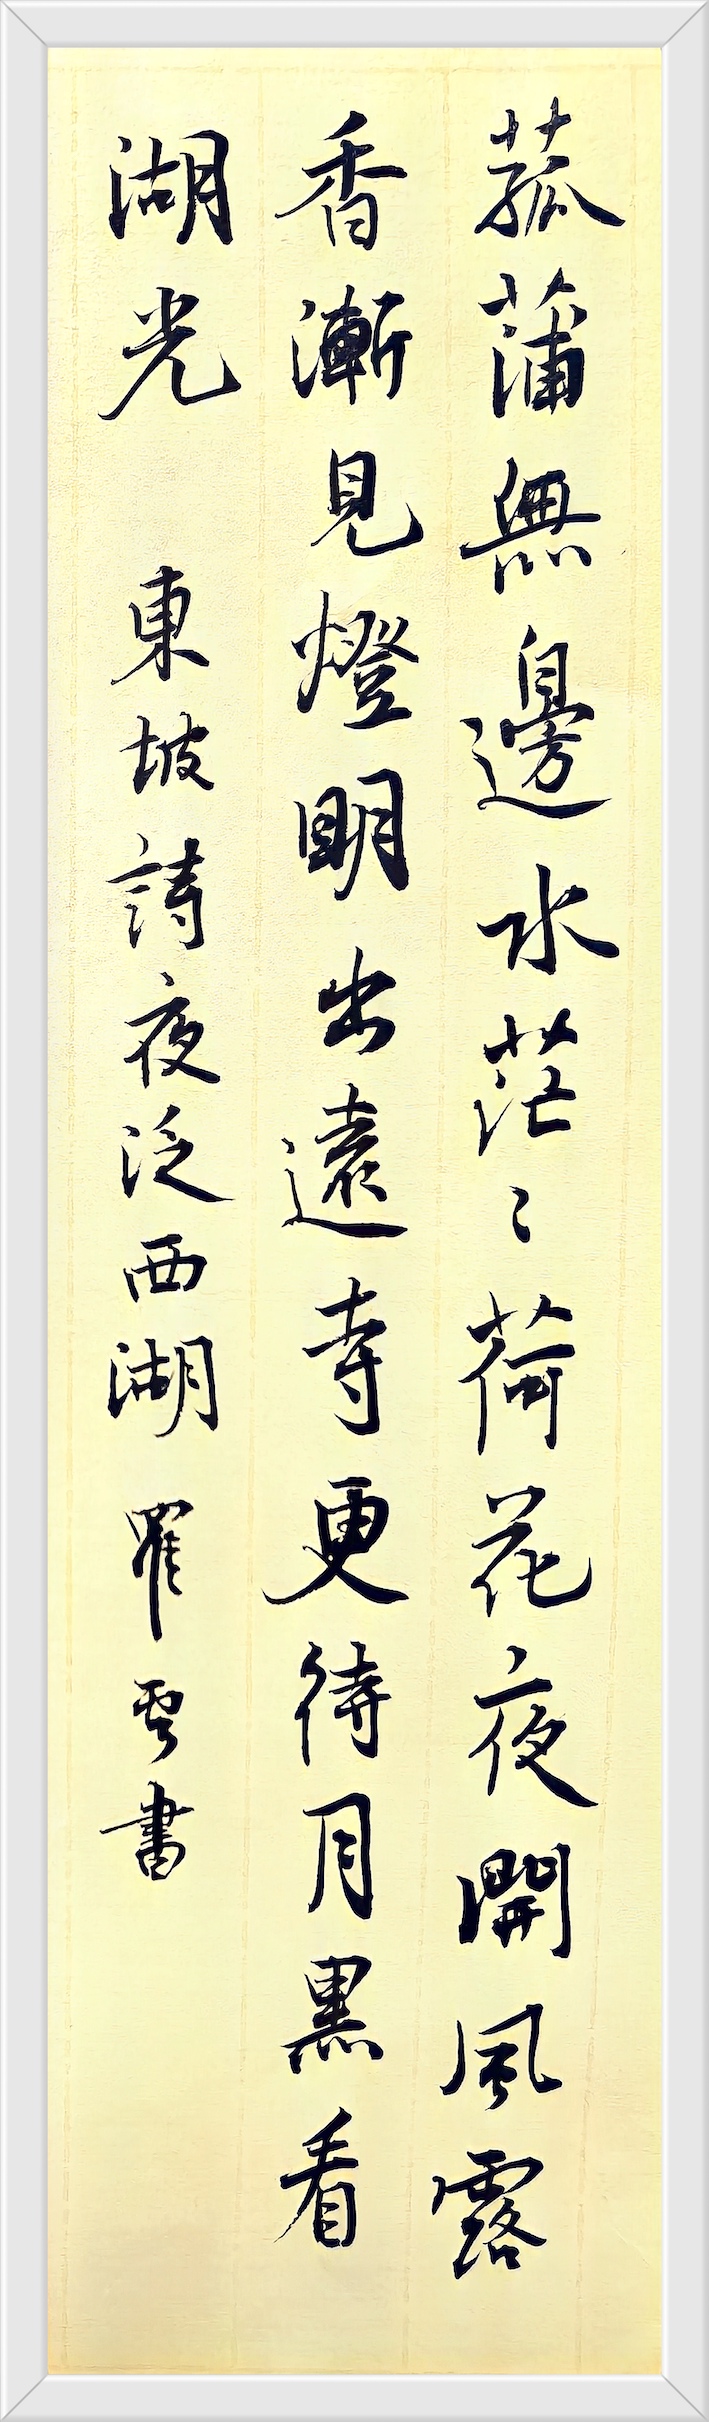 菰蒲無邊水茫〻荷花夜開風露
香漸見燈明出遠寺更待月黑看
湖光 東坡詩夜泛西湖 翟雲書